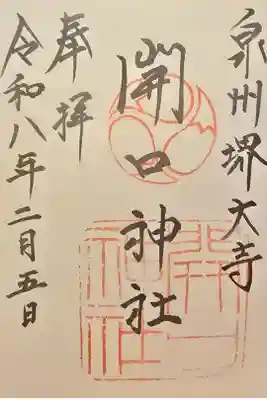 泉州堺大寺
開口神社
奉拝
令和八年二月五日
開口
神社